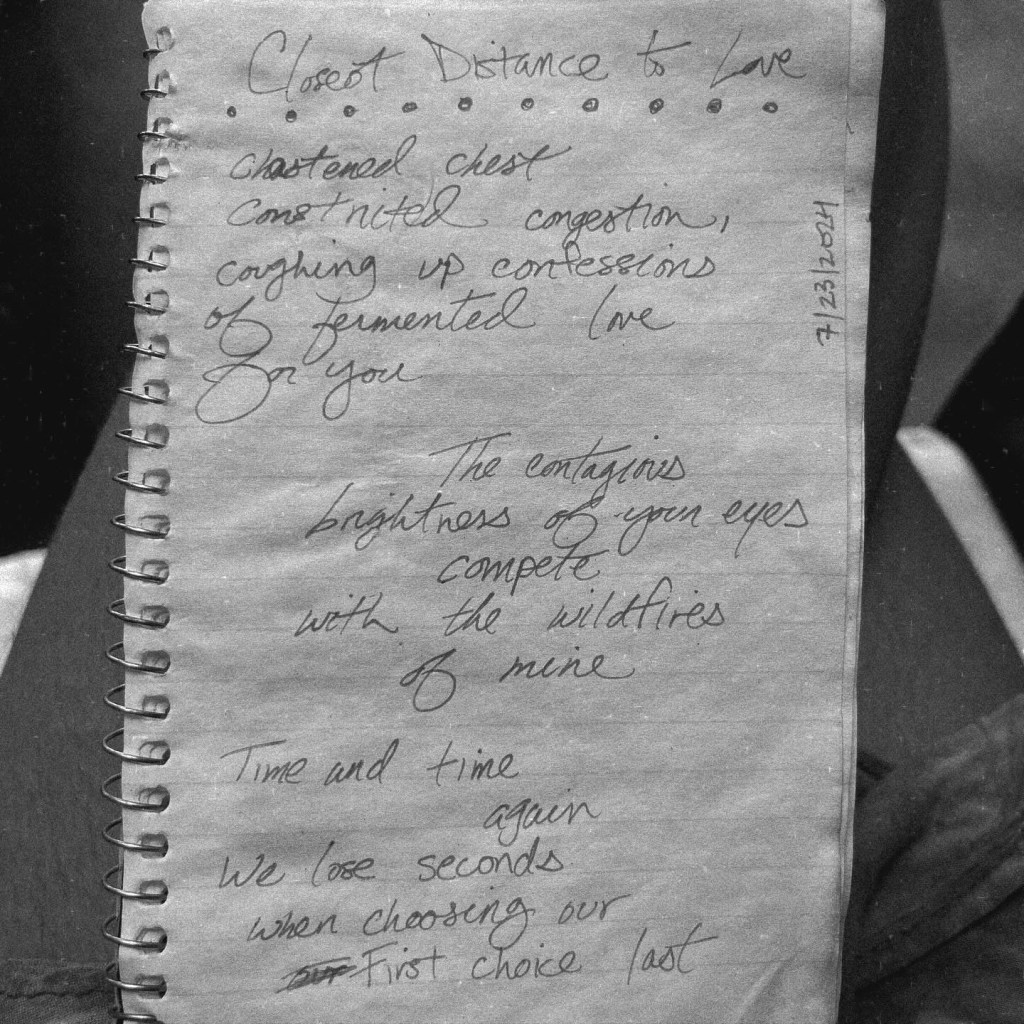 Closest Distance to Love
chastened chest
constricted congestion,
coughing up confessions
of fermented love
for you
7/23/2024
The contagious
brightness of your eyes
compete
with the wildfires
of mine
Time and time
again
We lose seconds
when choosing our
First choice last